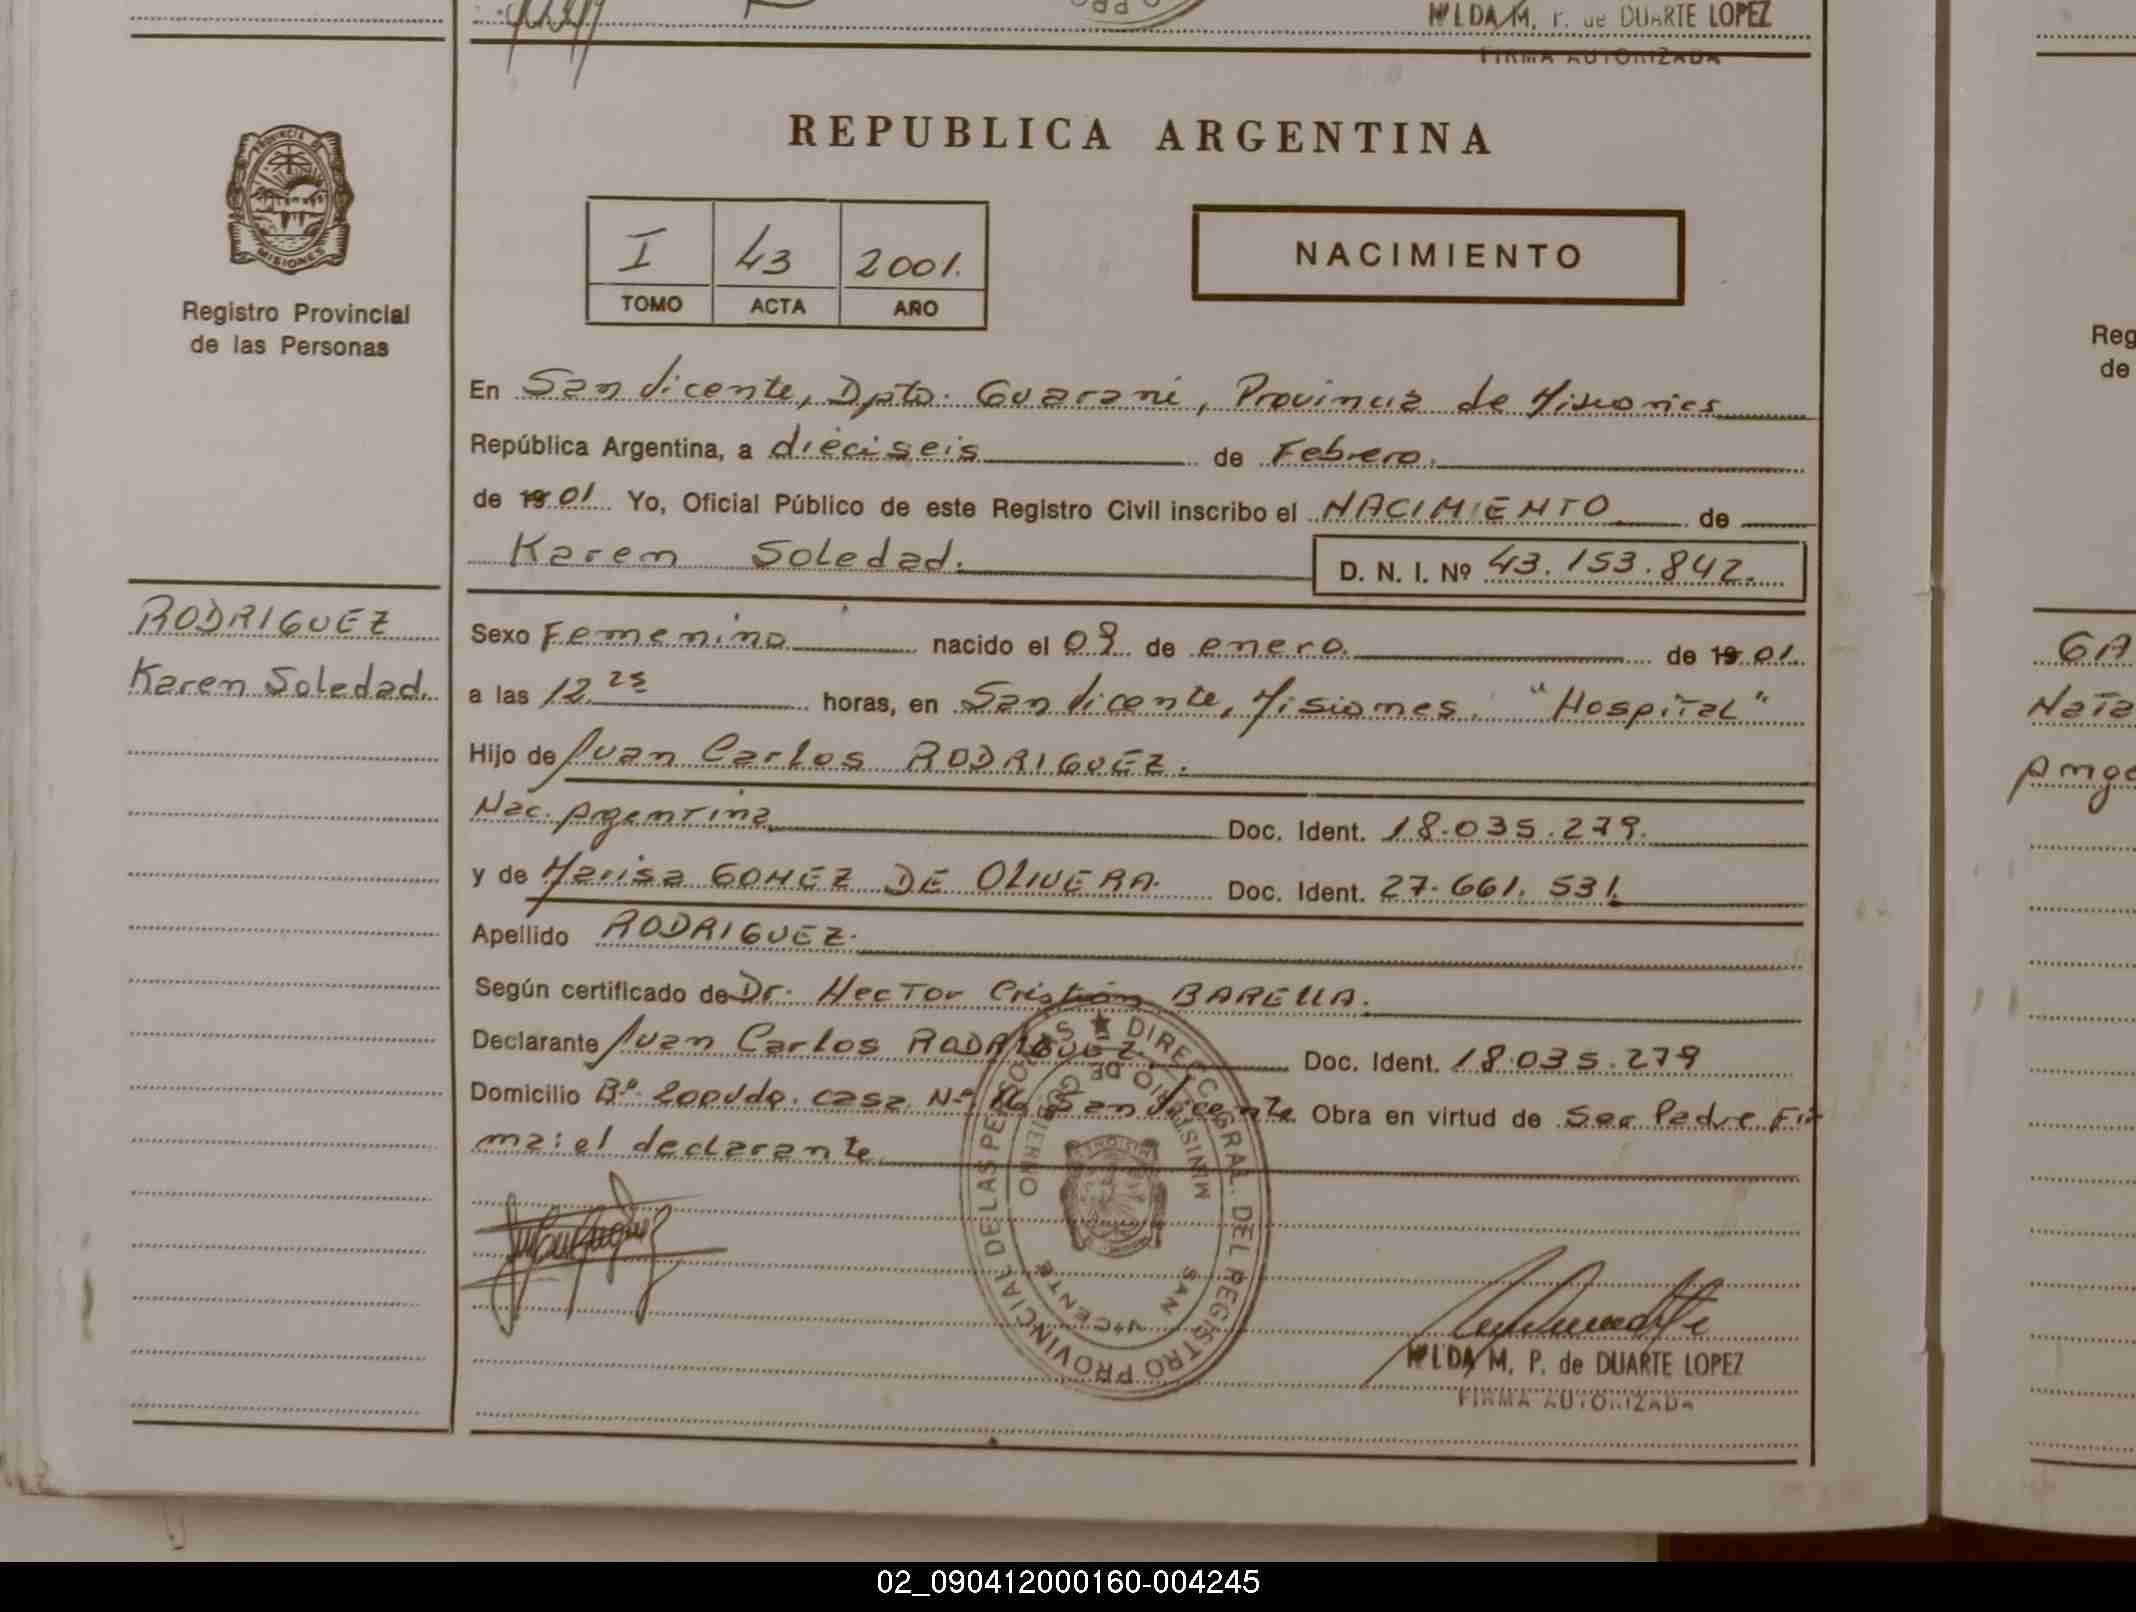 HILDA M. P. de DUARTE LOPEZ
FIRMA AUTORIZADA
PROVINCIA DE
MISIONES
Registro Provincial
de las Personas
REPUBLICA ARGENTINA
I 43 2001.
TOMO ACTA AÑO
NACIMIENTO
En San Vicente, Dpto. Guarani, Provincia de Misiones
República Argentina, a dieciseis de Febrero.
de 19 01 Yo, Oficial Público de este Registro Civil inscribo el NACIMIENTO de
Karen Soledad. D. N. I. Nº 43.153.842.
RODRIGUEZ
Karen Soledad.
Sexo Femenino nacido el 09 de enero. de 19 01.
a las 12 25 horas, en San Vicente, Misiones. "Hospital"
Hijo de Juan Carlos RODRIGUEZ.
Nac. Argentina Doc. Ident. 18.035.279.
y de Marisa GOMEZ DE OLIVERA. Doc. Ident. 27.661.531.
Apellido RODRIGUEZ.
Según certificado de Dr. Hector Cristian BARELLA.
Declarante Juan Carlos RODRIGUEZ. Doc. Ident. 18.035.279
Domicilio Bº casa Nº San Vicente Obra en virtud de Ser Padre Fir
ma: el declarante
DIREC. GRAL. DEL REGISTRO PROVINCIAL DE LAS PERSONAS
MINISTERIO DE GOBIERNO
SAN VICENTE
HILDA M. P. de DUARTE LOPEZ
FIRMA AUTORIZADA
Reg
de
GA
Nata
Ange
02_090412000160-004245